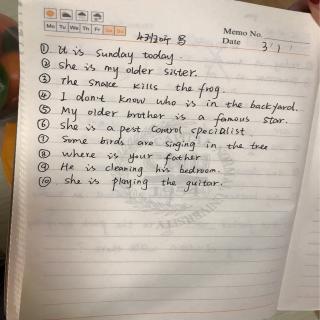 Mo Tu We Th Fr Sa Su
Memo No.
Date 3 1
① It is sunday today.
② she is my older sister.
③ The snake kills the frog.
④ I don't know who is in the backyard.
⑤ My older brother is a famous star.
⑥ she is a pest control specialist
⑦ Some birds are singing in the tree
⑧ where is your father
⑨ He is cleaning his bedroom.
⑩ she is playing the guitar.